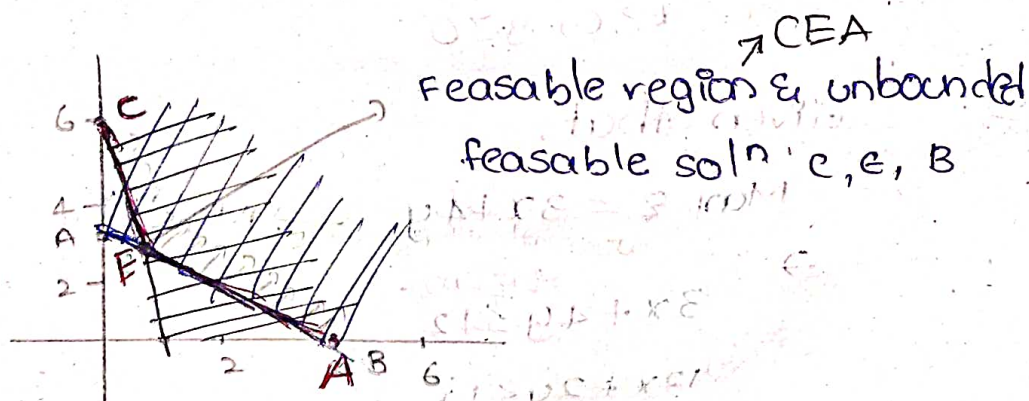 CEA
Feasable region & unbounded
feasable solⁿ c, e, B
6
C
4
A
E
2
2
A
B
6